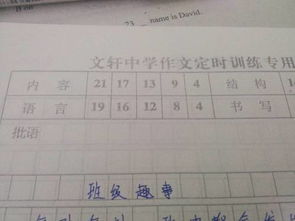 name is David.
文轩中学作文定时训练专用
内 容 21 17 13 9 4 结 构
语 言 19 16 12 8 4 书 写
批语
班级趣事